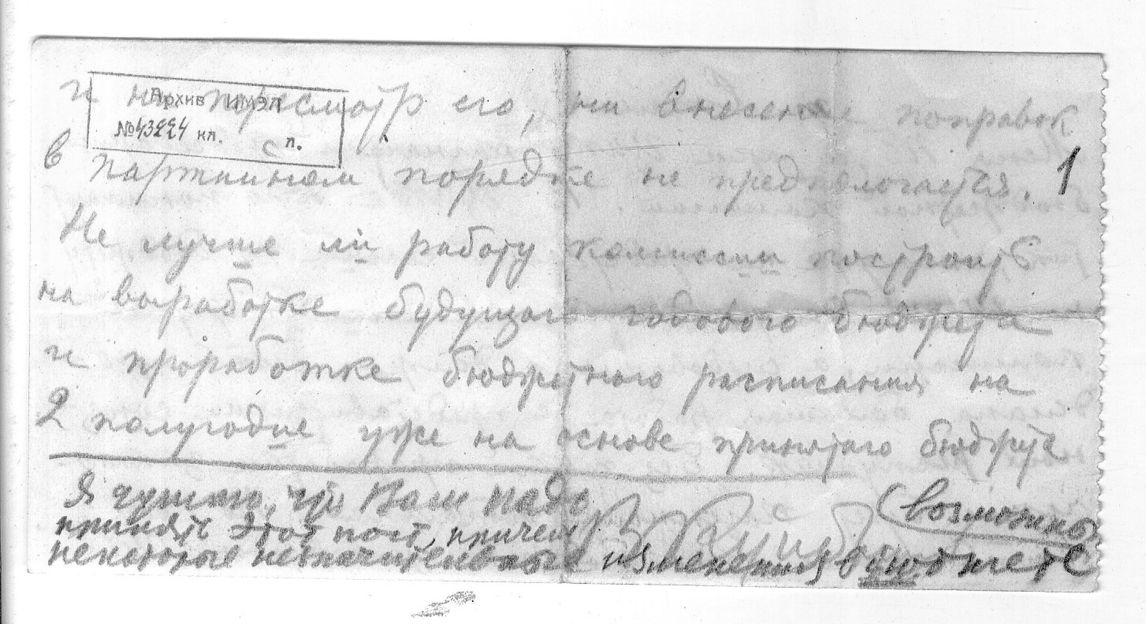 Архив ИМЭЛ
№43224 кп. п.
и ни пересмотр его, ни внесение поправок
в партийном порядке не предполагается. 1
Не лучше ли работу комиссии построить
на выработке будущего годового бюджета
и проработке бюджетного расписания на
2 полугодие уже на основе принятого бюджета
Я думаю, что Вам надо
принять этот пост, причем (возможны
некоторые незначительные изменения в бюджете